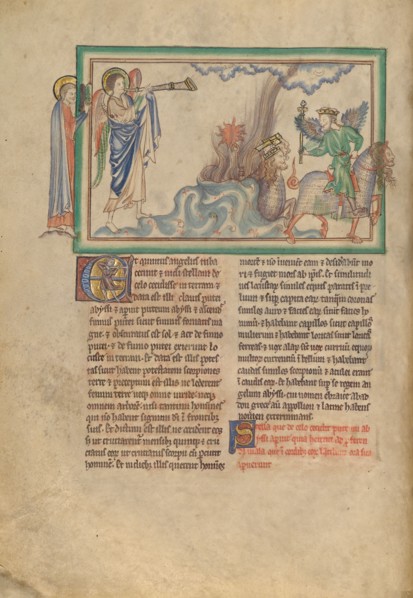 Et quintus angelus tuba
cecinit & uidi stellam de
celo cecidisse in terram. &
data est illi clauis putei
abyssi. & aperuit puteum abyssi & ascen
fumus putei sicut fumus fornacis ma
gne. & obscuratus est sol & aer de fumo
putei. & de fumo putei exierunt lo
custe in terram. Et data est illis potes
tas sicut habent potestatem scorpiones
terre & preceptum est illis ne lederent
fenum terre neqȝ omne uiride. neqȝ
omnem arborem. nisi tantum homines
qui non habent signum in frontibȝ
suis. Et dictum est illis ne occident eos
ut cruciarent mensibȝ quinqȝ & cru
ciatus ut cruciatus scorpii cum percutit
hominem. Et in diebȝ illis querent homines
mortem & non inuenient eam & desiderabunt mo
ri & fugiet mors ab ipsis. Et similitudi
nes locustarum similes equis paratis in pre
lium & super capita earum tanquam corone
similes auro & facies earum sicut facies ho
minum. & habebant capillos sicut capillos
mulierum & habebant loricas sicut loricas
ferreas & uox alarum sicut uox curruum equorum
multorum currentium in bellum & habebant
caudas similes scorpionum & aculei erant
in caudis earum. Et habebant super se regem an
gelum abyssi cui nomen ebraice abad
don grece autem appollion & latine habens
nomen exterminans.
Stella que de celo cecidit ab
yssi aperuit quia
aperuerunt